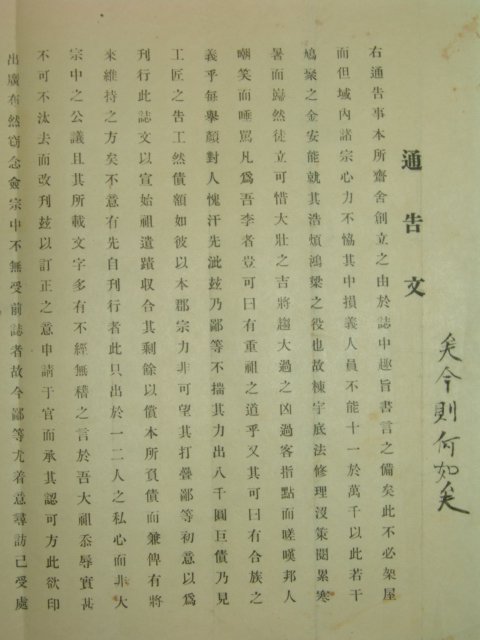 通告文
右通告事本所齋舍創立之由於誌中趣旨書言之備矣此不必架屋
而但域內諸宗心力不恊其中損義人員不能十一於萬千以此若干
鳩聚之金安能就其浩煩鴻梁之役也故棟宇底法修理沒策閱累寒
暑而巋然徒立可惜大壯之吉將趨大過之凶過客指點而嗟嘆邦人
嘲笑而唾罵凡爲吾李者豈可曰有重祖之道乎又其可曰有合族之
義乎每擧顔對人愧汗先泚玆乃鄙等不揣其力出八千圓巨債乃見
工匠之告工然債額如彼以本郡宗力非可望其打疊鄙等初意以爲
刊行此誌文以宣始祖遺蹟收合其剩餘以償本所負債而兼俾有將
來維持之方矣不意有先自刊行者此只出於一二人之私心而非大
宗中之公議且其所載文字多有不經無稽之言於吾大祖忝辱實甚
不可不汰去而改刊玆以訂正之意申請于官而承其認可方此欲印
出廣布然窃念僉宗中不無受前誌者故今鄙等尤着意尋訪已受處
矣今則何如矣